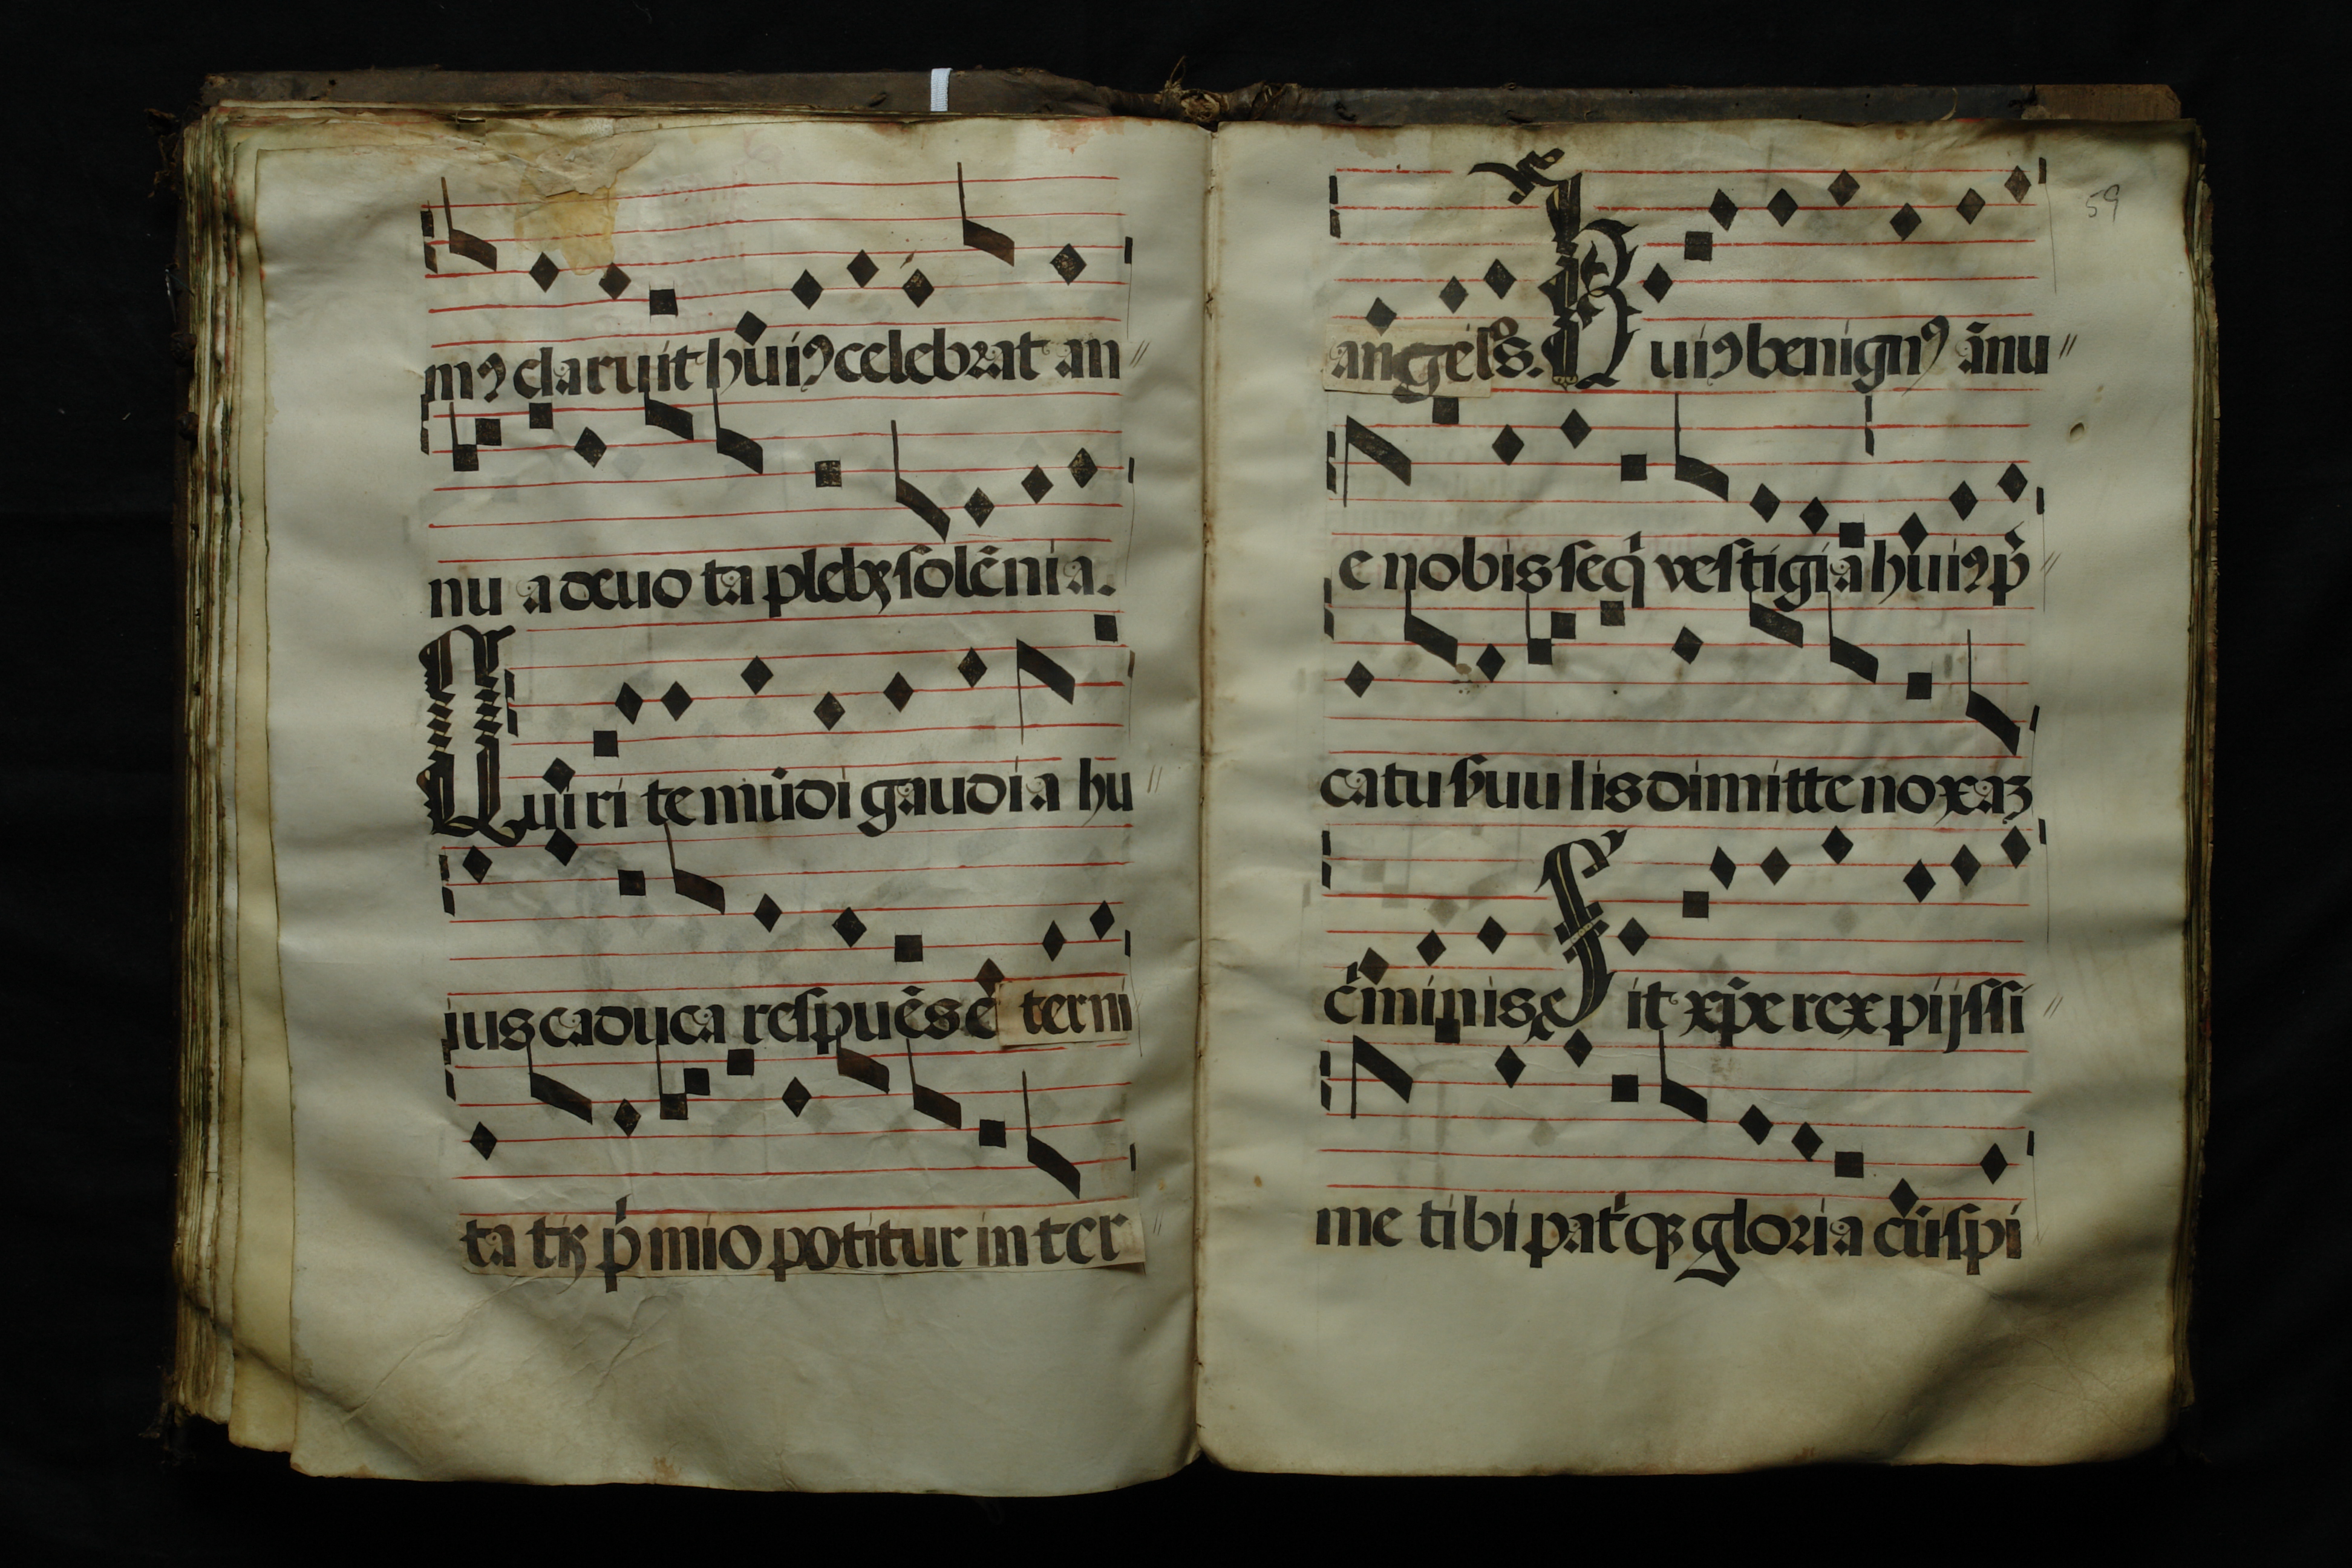 mꝰ claruit huiꝰ celebrat an
nu a deuo ta plebs solēnia.
Qui ri te mūdi gaudia hu
ius caduca respuēs e terni
ta tis p̄ mio potitur in ter
59
angelos. Huiꝰ benignꝰ ānu
e nobis seq̄ vestigia huiꝰ p̄
catu seruu lis dimitte noxas
c̄minis. Sit xp̄e rex pijssi
me tibi patrqꝫ gloria cū spi